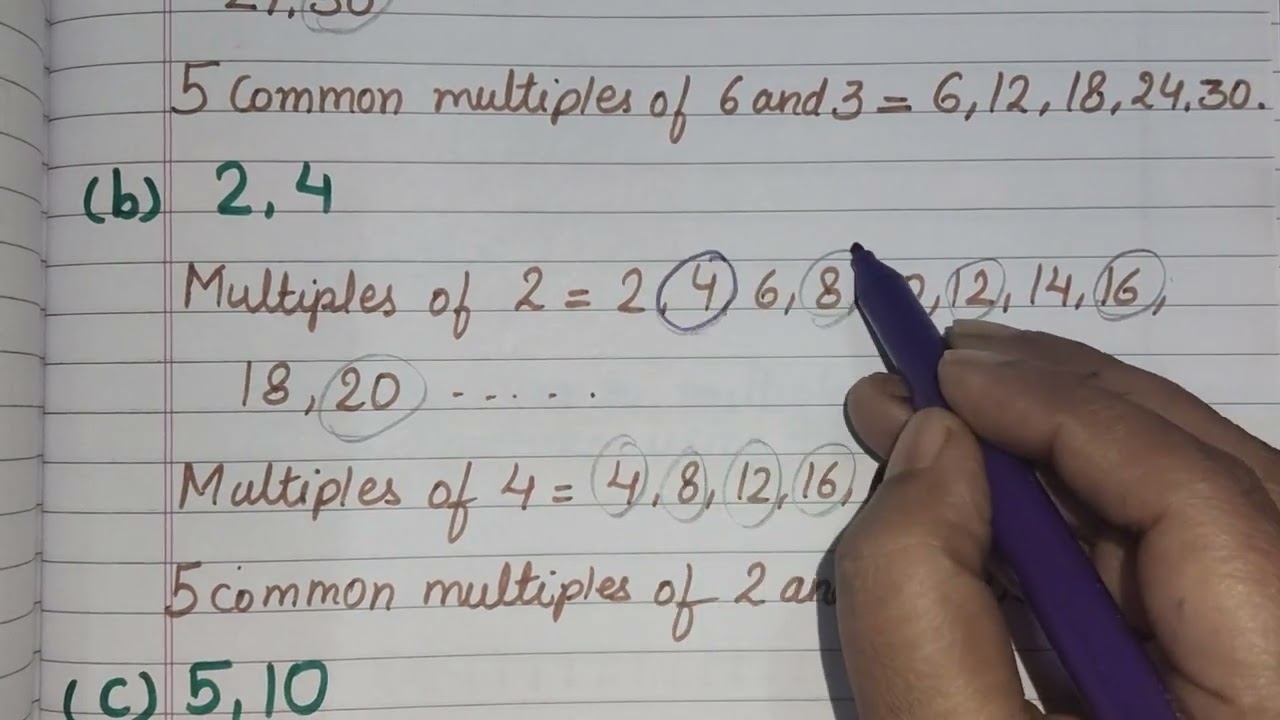 5 Common multiples of 6 and 3 = 6, 12, 18, 24. 30.
(b) 2, 4
Multiples of 2 = 2, 4 6, 8, 12, 14, 16,
18, 20 ......
Multiples of 4 = 4, 8, 12, 16,
5 common multiples of 2
(c) 5, 10